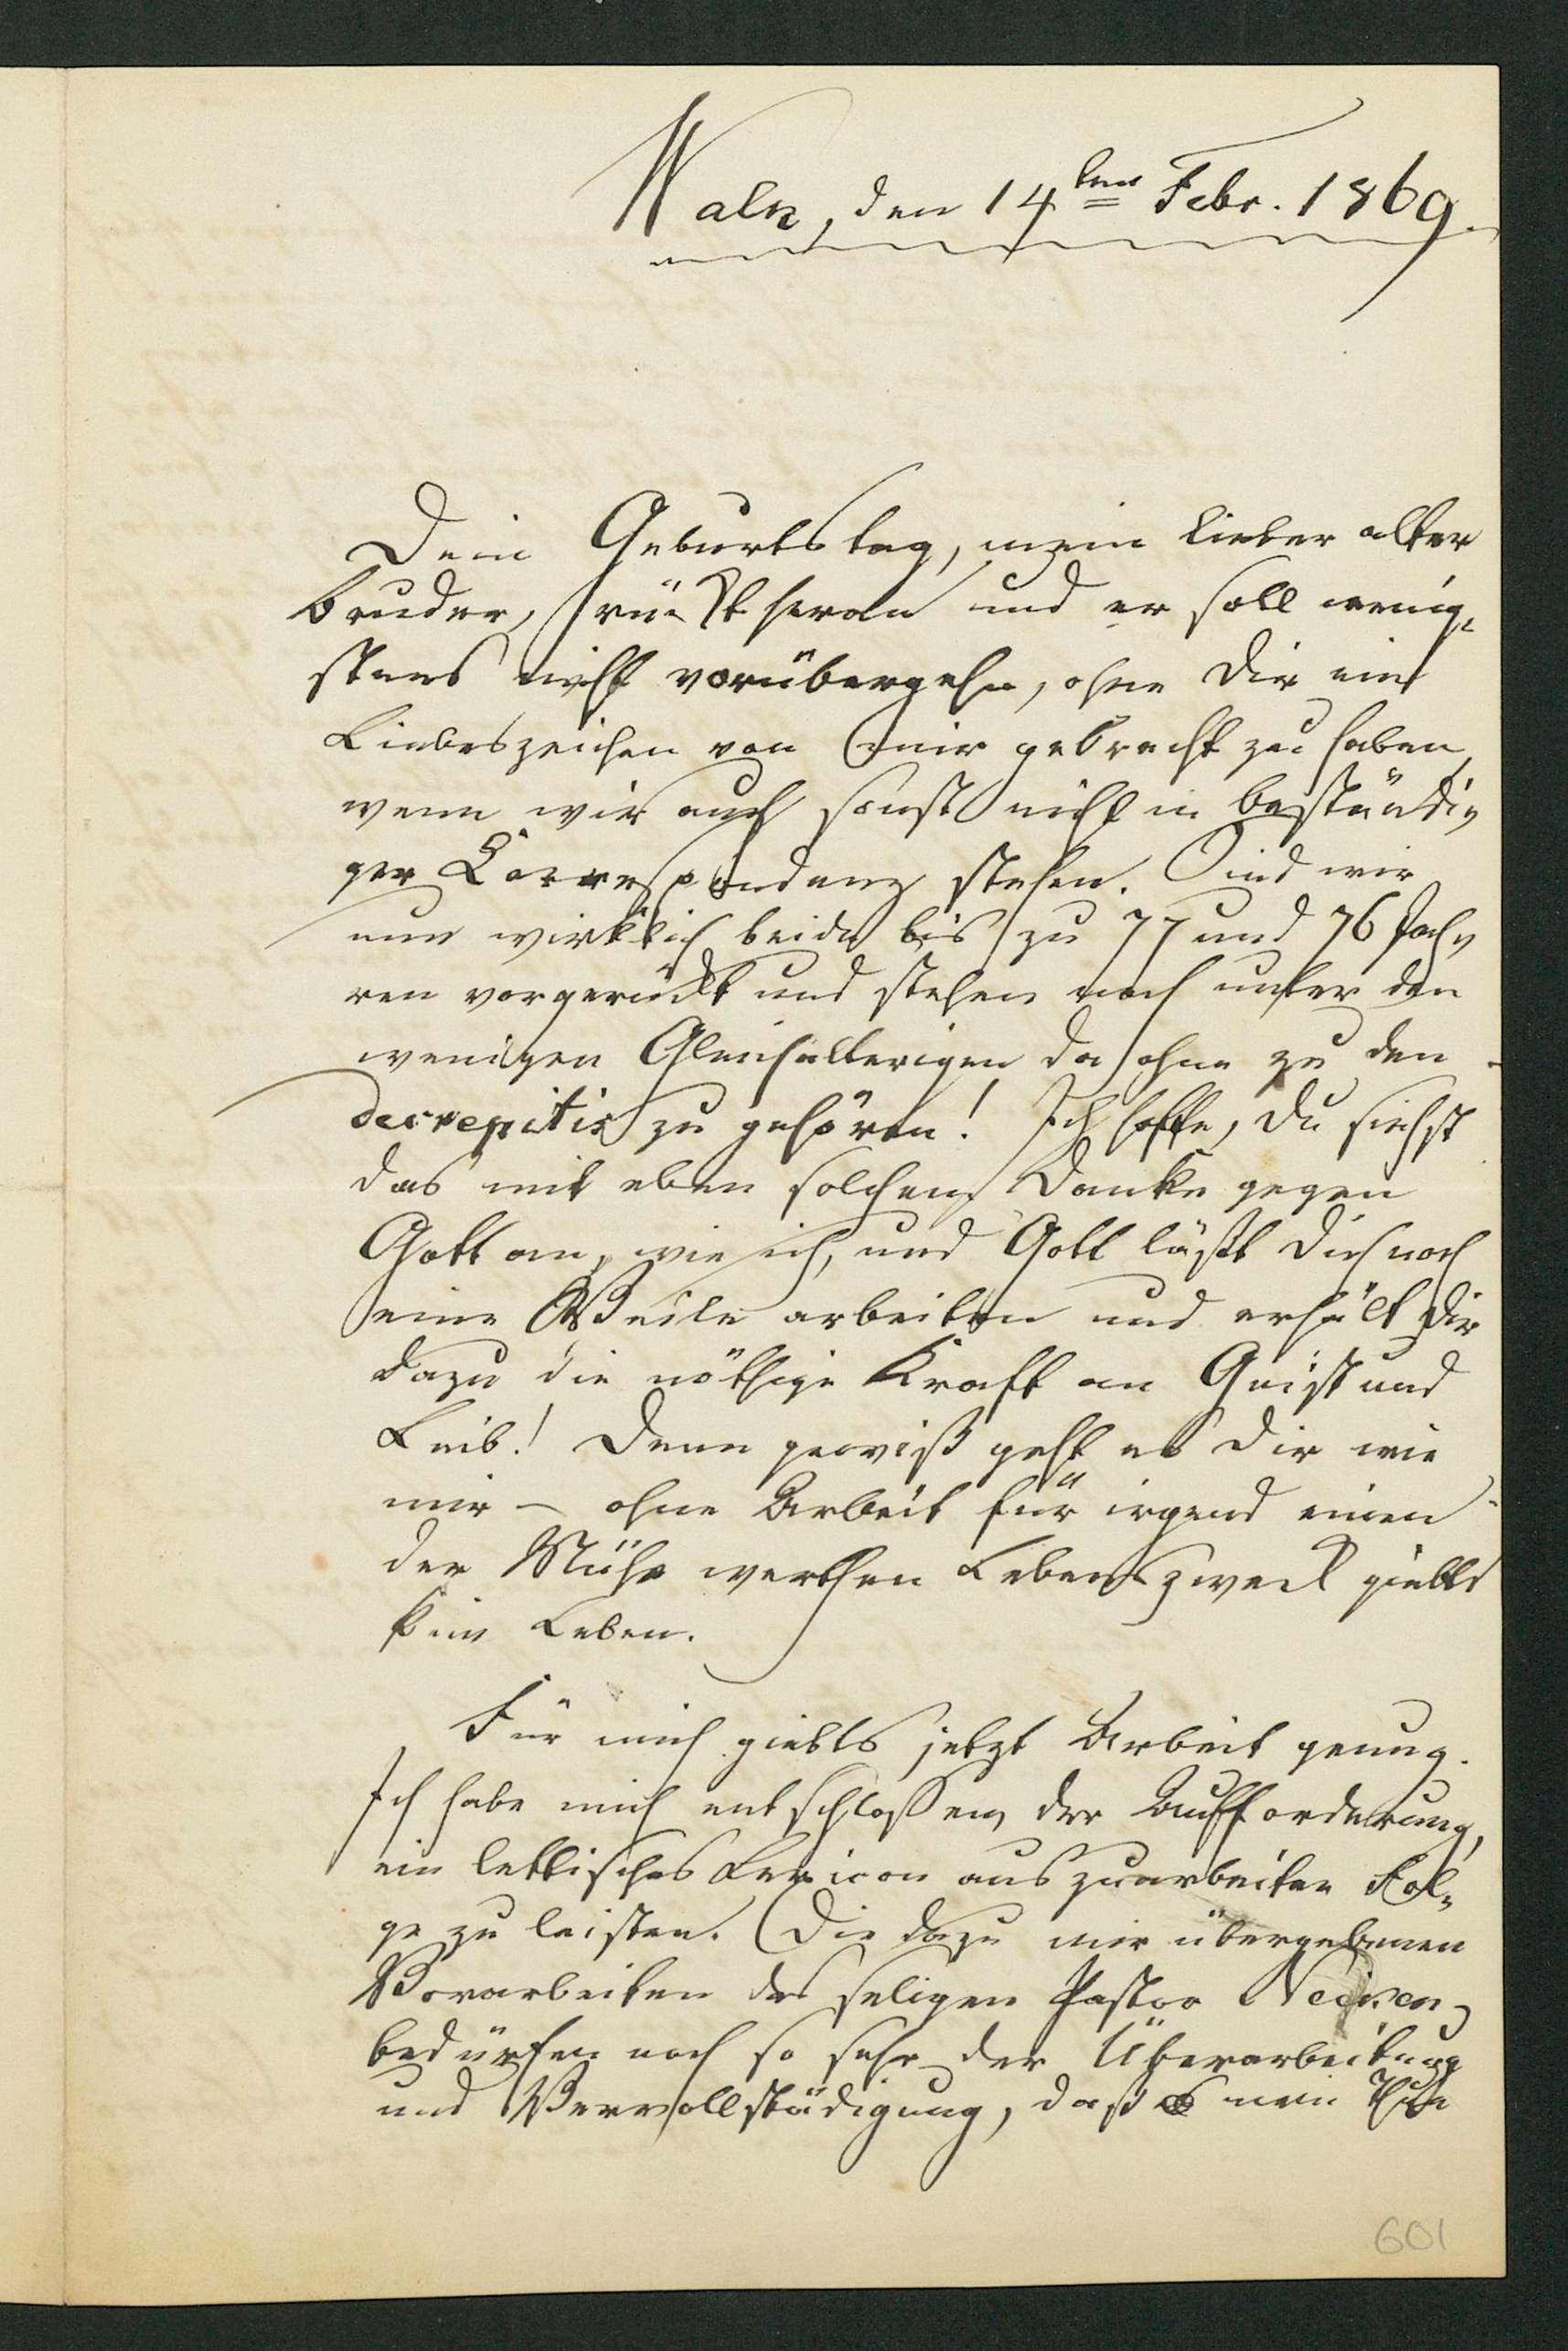 Walk, den 14ten Febr. 1869.
Dein Geburtstag, mein lieber alter
Bruder, rückt heran und er soll wenig-
stens nicht vorübergehn, ohne Dir ein
Liebeszeichen von mir gebracht zu haben,
wenn wir auch sonst nicht in beständi-
ger Correspondenz stehen. Sind wir
nun wirklich beide bis zu 77 und 76 Jah-
ren vorgerückt und stehen noch unter den
wenigen Gleichalterigen da ohne zu den
decrepitis zu gehören! Ich hoffe, Du siehst
das mit eben solchem Danke gegen
Gott an, wie ich, und Gott läßt Dich noch
eine Weile arbeiten und erhält Dir
dazu die nöthige Kraft an Geist und
Leib! Denn gewiß geht es Dir wie
mir – ohne Arbeit für irgend einen
der Mühe werthen Lebenszweck giebts
kein Leben.
Für mich giebts jetzt Arbeit genug.
Ich habe mich entschlossen, der Aufforderung,
ein lettisches Lexicon auszuarbeiten Fol-
ge zu leisten. Die dazu mir übergebenen
Vorarbeiten des seligen Pastor Neiken
bedürfen noch so sehr der Überarbeitung
und Vervollstädigung, daß es nein
601